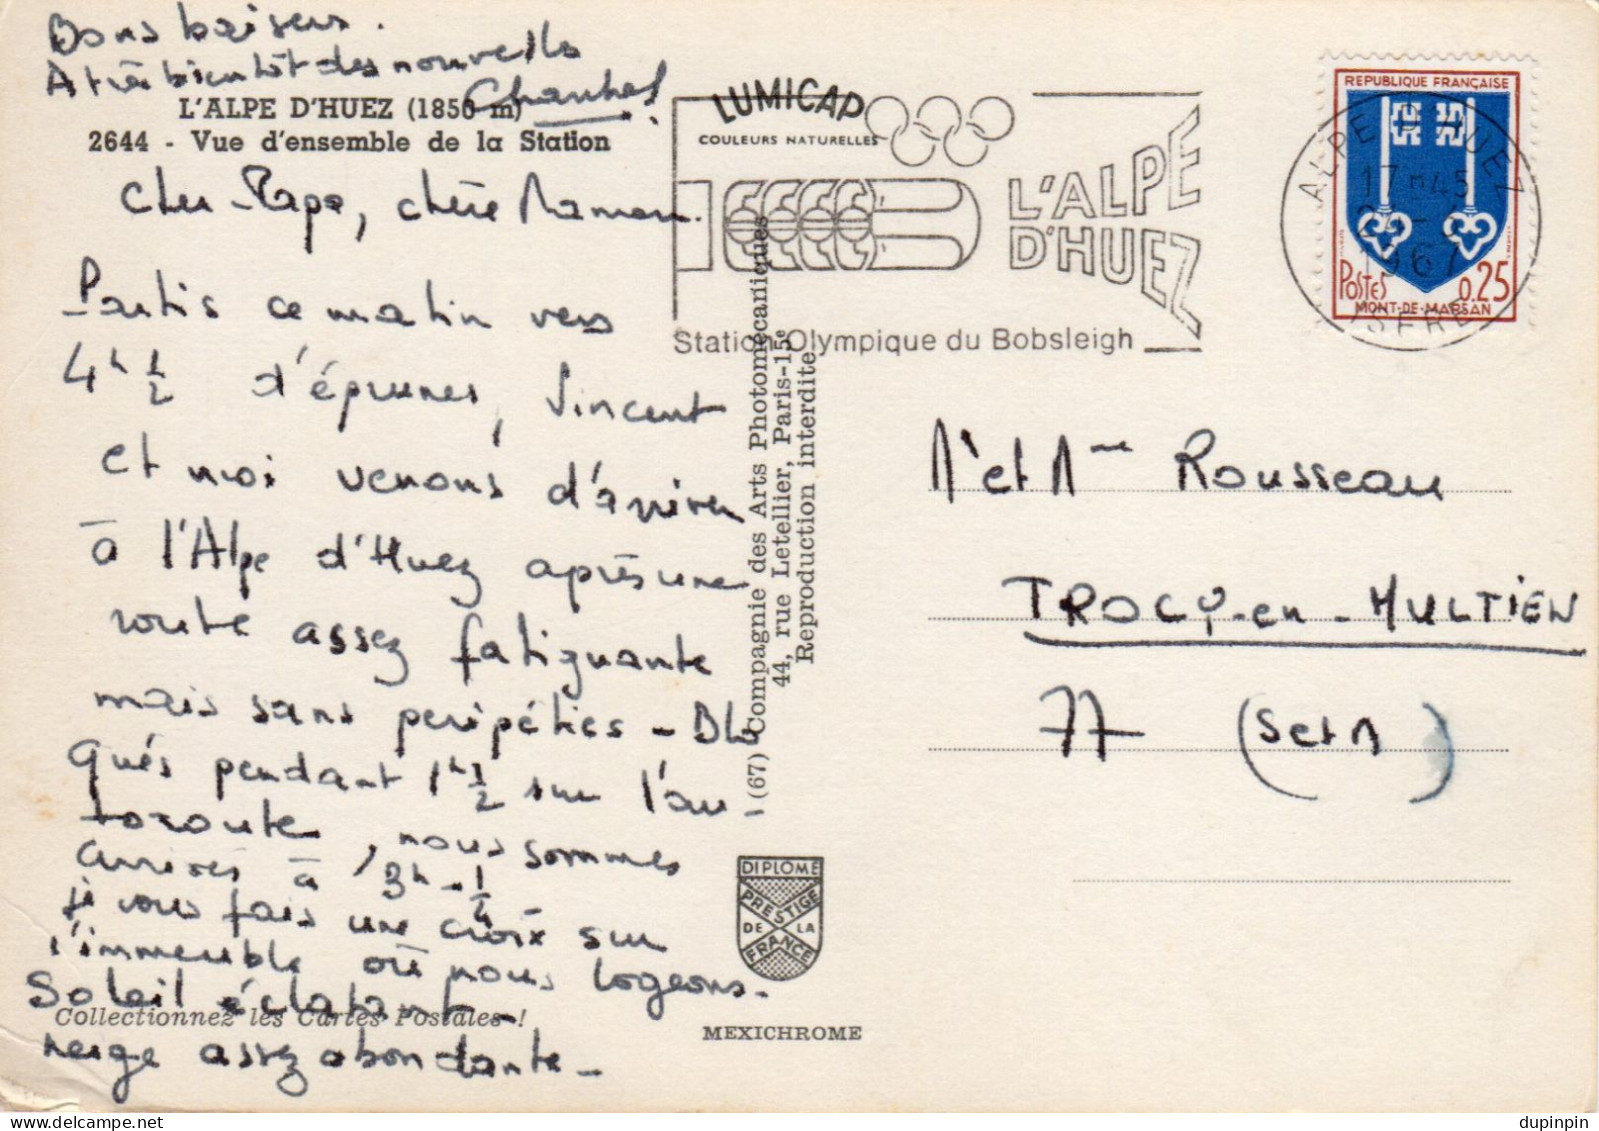 Bons baisers.
A très bientôt des nouvelles
Chantal
L'ALPE D'HUEZ (1850 m)
2644 - Vue d'ensemble de la Station
Cher Papa, chère Maman.
Partis ce matin vers
4h 1/2 d'éprunes, Vincent
et moi venons d'arriver
à l'Alpe d'Huez après une
route assez fatiguante
mais sans peripéties - Blo
qués pendant 1h 1/2 sur l'au-
toroute, nous sommes
arrivés à 3h - 1/4
je vous fais une croix sur
l'immeuble où nous logeons.
Soleil éclatant -
neige assez abondante -
Collectionnez les Cartes Postales !
LUMICAP
COULEURS NATURELLES
L'ALPE
D'HUEZ
Station Olympique du Bobsleigh
REPUBLIQUE FRANÇAISE
POSTES 0,25
MONT-DE-MARSAN
ALPE D'HUEZ
17 h 45
1967
ISERE
(67) Compagnie des Arts Photomécaniques
44, rue Letellier, Paris-15e
Reproduction interdite
Mr et Mme Rousseau
TROCY-en-MULTIEN
77 (S et M)
DIPLOME
PRESTIGE
DE LA
FRANCE
MEXICHROME
dupinpin